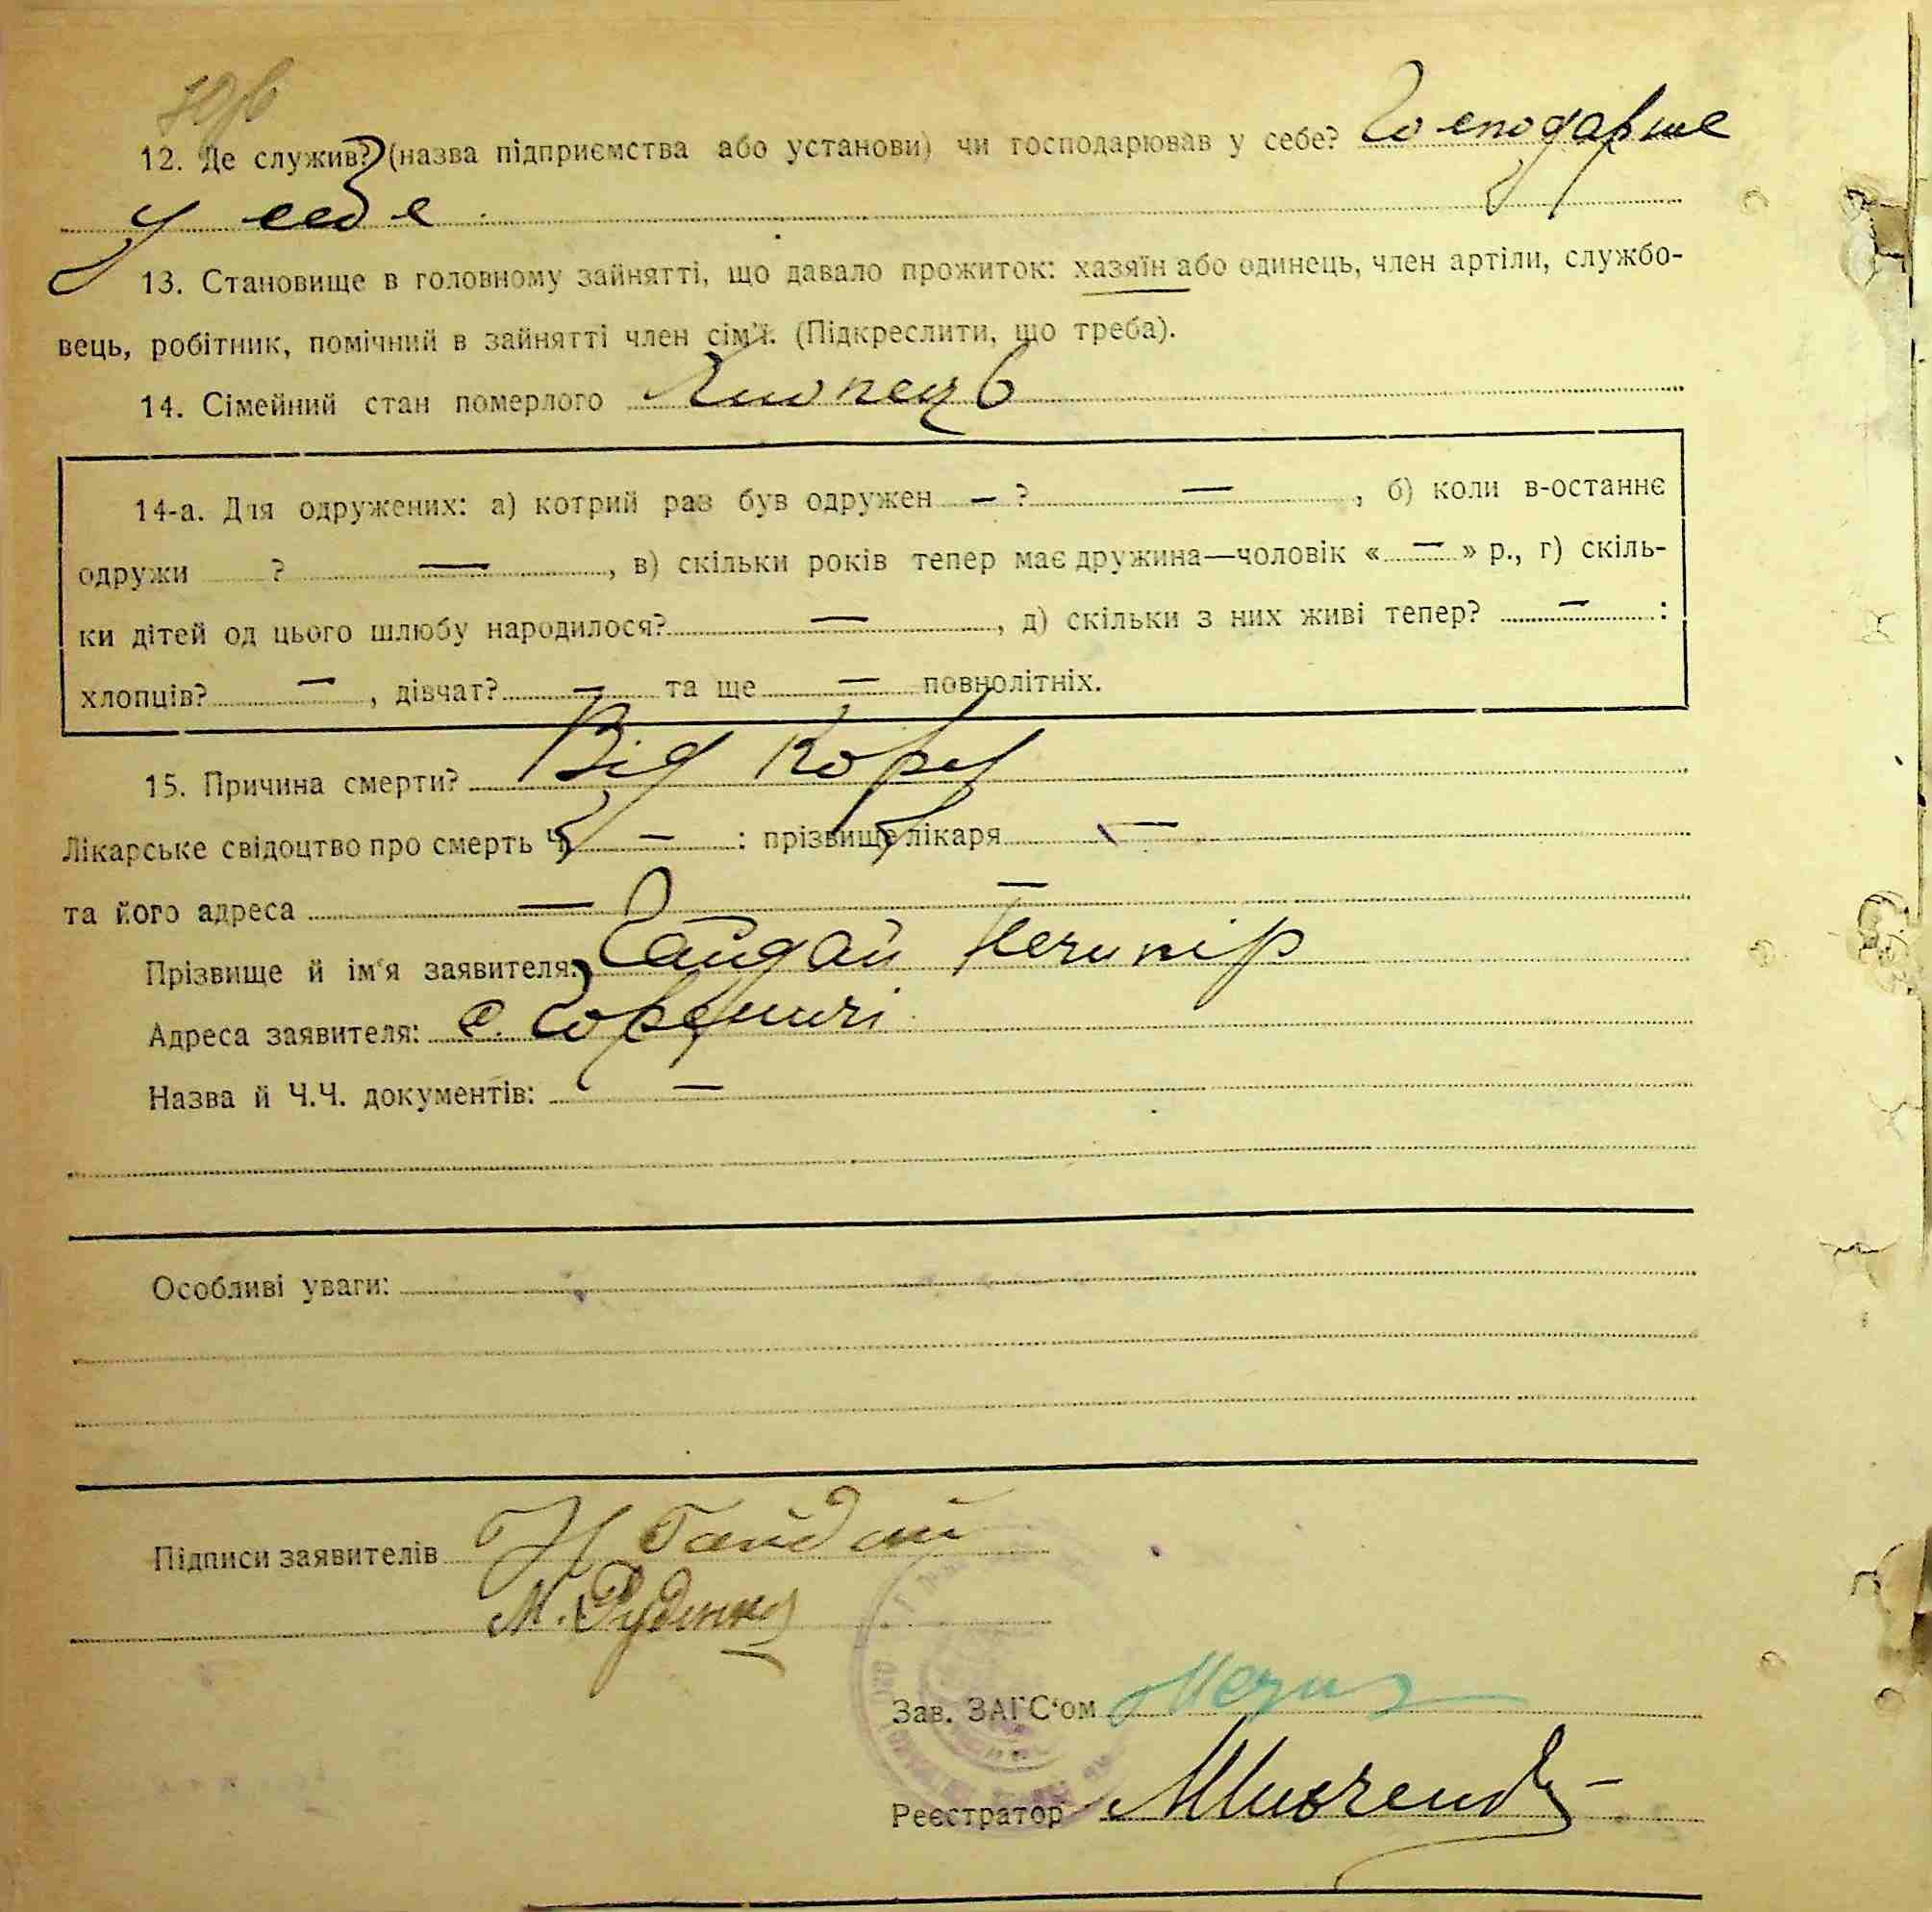 12. Де служив? (назва підприємства або установи) чи господарював у себе? Господарше
у себе
13. Становище в головному зайнятті, що давало прожиток: хазяїн або одинець, член артіли, службо-
вець, робітник, помічний в зайнятті член сім'ї. (Підкреслити, що треба).
14. Сімейний стан померлого Хлопець
14-а. Для одружених: а) котрий раз був одружен — ? —, б) коли в-останнє
одружи ? —, в) скільки років тепер має дружина—чоловік « — » р., г) скіль-
ки дітей од цього шлюбу народилося? —, д) скільки з них живі тепер? — :
хлопців? —, дівчат? — та ще — повнолітніх.
15. Причина смерти? Від Кору
Лікарське свідоцтво про смерть Ч. — : прізвище лікаря —
та його адреса — —
Прізвище й ім'я заявителя: Гайдай Нечипір
Адреса заявителя: с. Горбиичі
Назва й Ч.Ч. документів: —
Особливі уваги:
Підписи заявителів Н Гайдай
М. Руденко
Зав. ЗАГС'ом
Реєстратор